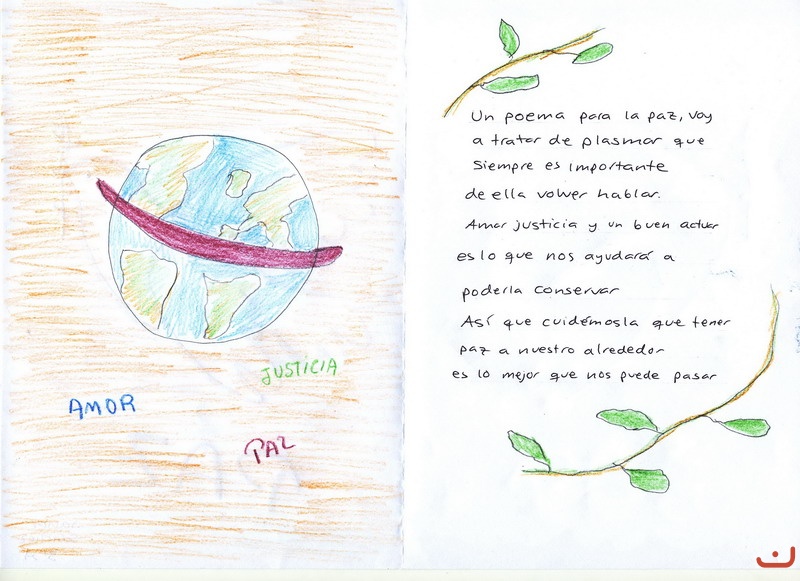 JUSTICIA
AMOR
PAZ
Un poema para la paz, voy
a tratar de plasmar que
Siempre es importante
de ella volver hablar.
Amar justicia y un buen actuar
es lo que nos ayudará a
poderla conservar
Así que cuidémosla que tener
paz a nuestro alrededor
es lo mejor que nos puede pasar